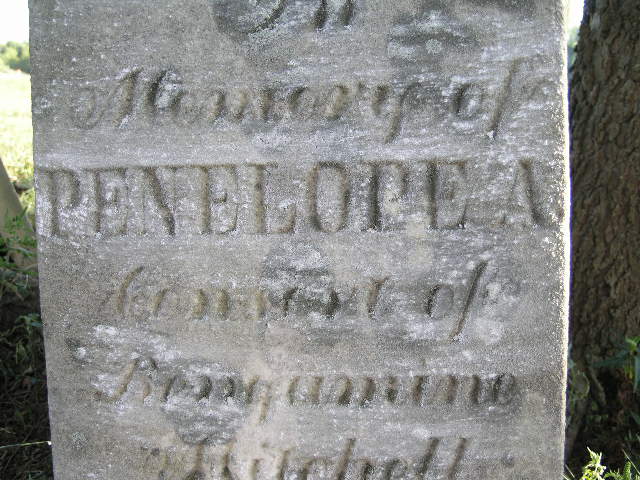 In
Memory of
PENELOPE A.
Consort of
Benjamine
Mitchell